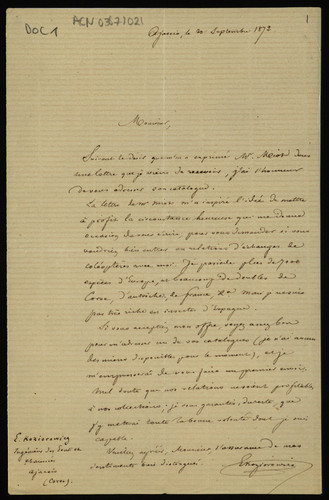 DOC 1
1
Ajaccio, le 20 Septembre 1872
Monsieur,
Suivant le désir que m'a exprimé Mr. Mieg dans
une lettre que je viens de recevoir, j'ai l'honneur
de vous adresser son catalogue.
La lettre de Mr m'a inspiré l'idée de mettre
à profit la circonstance heureuse qui me donne
occasion de vous écrire, pour vous demander si vous
voudriez bien entrer en relations d'échanges de
coléoptères avec moi. Je possède plus de 7000
espèces d'Europe, et beaucoup de doubles de
Corse, d'Autriche, de France, mais je ne suis
pas très riche en insectes d'Espagne.
Si vous acceptez mon offre, soyez assez bon
pour m'adresser un de vos catalogues (je n'ai aucun
des miens disponible pour le moment), et je
m'empresserai de vous faire un premier envoi.
Nul doute que nos relations ne soient profitables
à nos collections; je vous garantis, du reste, que
j'y mettrai toute la bonne volonté dont je suis
capable.
Veuillez agréer, Monsieur, l'assurance de mes
sentiments très distingués.
E. Koziorowicz
E. Koziorowicz
Ingénieur des Ponts et
Chaussées
Ajaccio
(Corse).